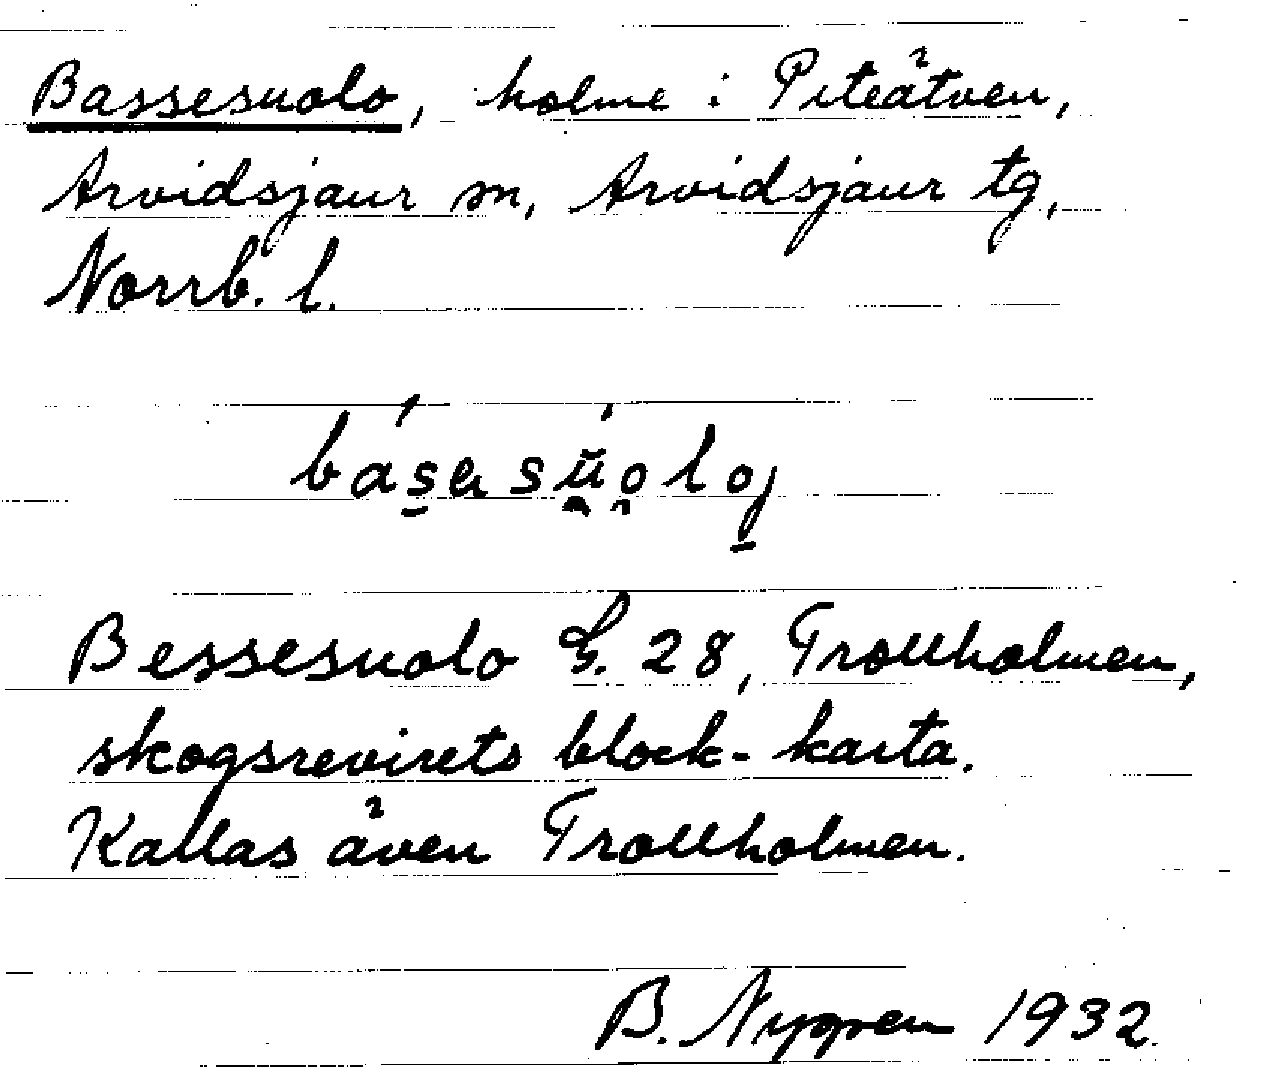 Bassesuolo, holme i Piteälven,
Arvidsjaur sn, Arvidsjaur tg,
Norrb. l.
Bessesuolo G. 28, Trollholmen,
skogsrevirets block-karta.
Kallas även Trollholmen.
B. Nygren 1932.